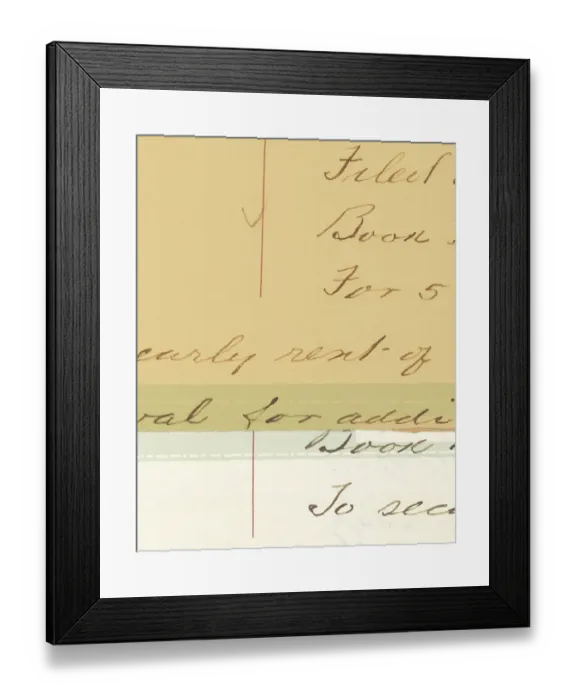 Filed
Book
For 5
early rent of
val for addi
Book
To sec